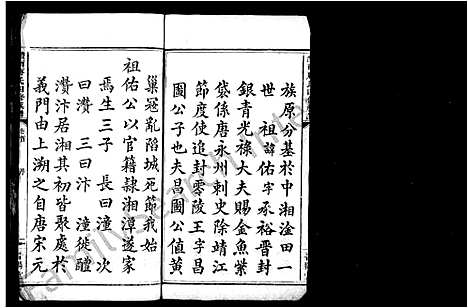 族原分基於中湘淦田一
世祖諱佑字承裕晋封
銀青光祿大夫賜金魚紫
袋係唐永州刺史除靖江
節度使追封零陵王字昌
圖公子也夫昌圖公值黃
巢冦亂陷城死節我始
祖佑公以官籍隷湘潭遂家
焉生三子長曰潼次
曰瓚三曰汴潼徙醴
瓚汴居湘其初皆聚處於
義門由上溯之自唐宋元
FamilySearch International